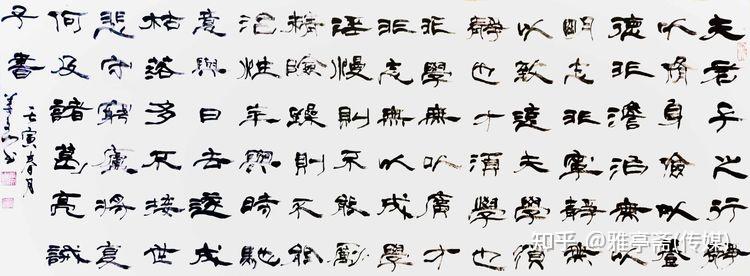 夫君子之行靜
以脩身儉以養
德非澹泊無以
明志非寧靜無
以致遠夫學須
靜也才須學也
非學無以廣才
非志無以成學
淫慢則不能勵
精險躁則不能
治性年與時馳
意與日去遂成
枯落多不接世
悲守窮廬將復
何及諸葛亮誡
子書
壬寅春月
知乎 @雅亭斋(传媒)